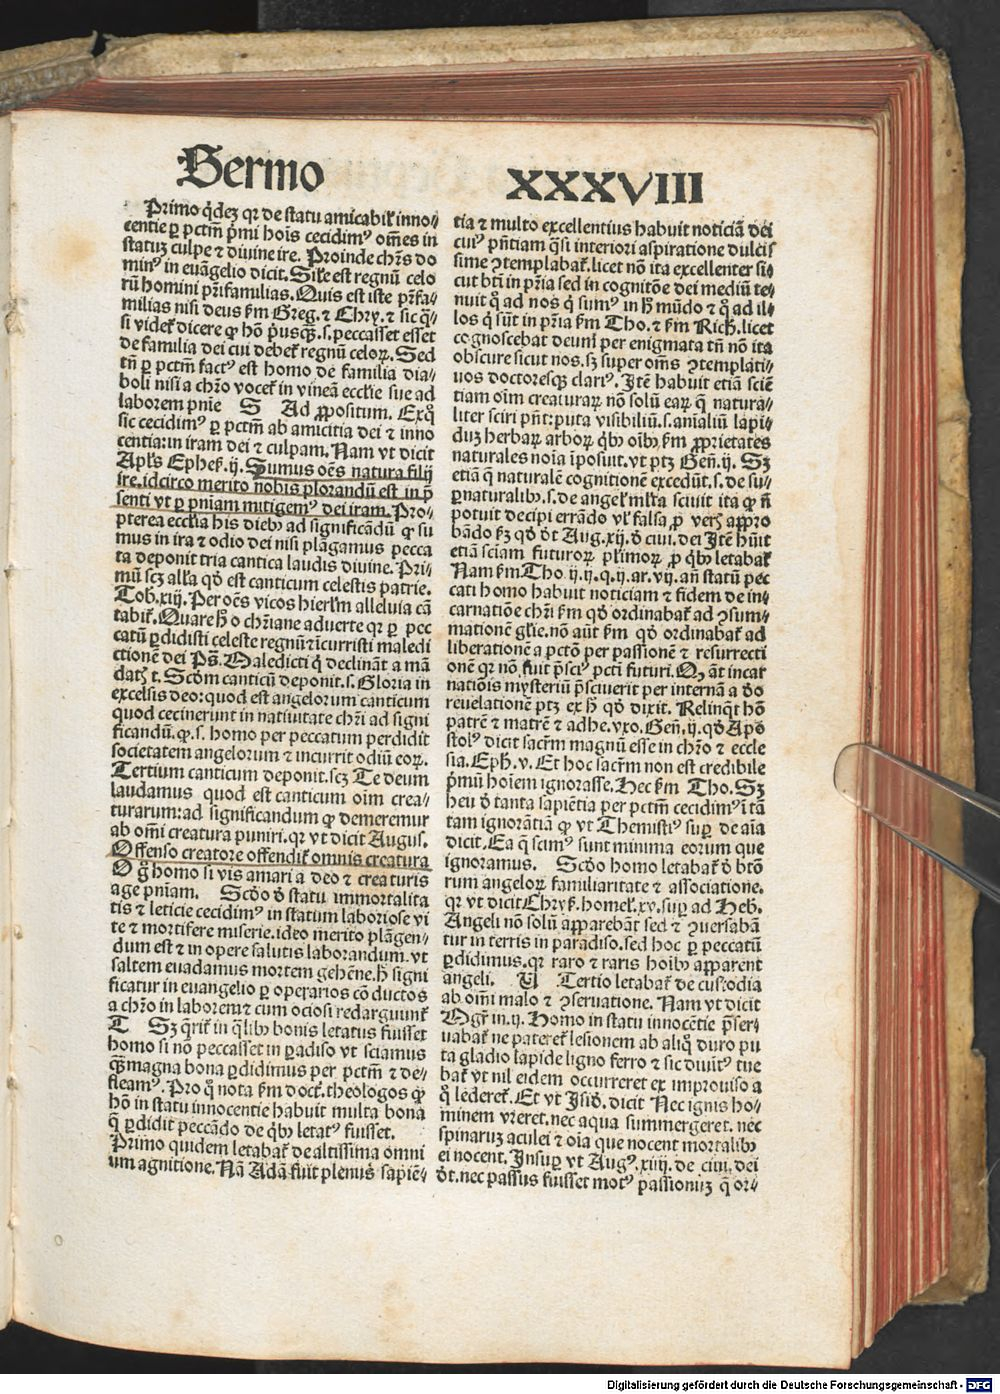 Sermo
XXXVIII
Primo q̇dez qꝛ de statu amicabil̕ inno⸗
centie ꝑ pctm̄ pꝛimi hoi̅s cecidimꝰ om̄es in
statuz culpe ⁊ diuine ire. Proinde chꝛ̄s do
minꝰ in euāgelio dicit. Sil̕e est regnū celo
rū homini pr̄ifamilias. Quis est iste pr̄fa⸗
milias nisi deus ẜm Greg. ⁊ Chry. ⁊ sic q̄⸗
si videt̕ dicere ꝙ hō pꝛiusq̄ꝫ .s. peccasset esset
de familia dei cui debet̕ regnū celoꝝ. Sed
tn̄ ꝑ pctm̄ factꝰ est homo de familia dia⸗
boli nisi a chꝛ̄o vocet̕ in vineā eccl̕ie sue ad
laborem pn̄ie S Ad ꝓpositum. Exq̊
sic cecidimꝰ ꝑ pctm̄ ab amicitia dei ⁊ inno
centia: in iram dei ⁊ culpam. Nam vt dicit
Apl̕s Ephes̕. ij. Sumus oēs natura filij
ire. idcirco merito nobis ploꝛandū est in pꝛ̄
senti vt ꝑ pn̄iam mitigemꝰ dei iram. Pro⸗
pterea eccl̕ia his diebꝰ ad significādū ꝙ su
mus in ira ⁊ odio dei nisi plāgamus pecca
ta deponit tria cantica laudis diuine. Pri⸗
mū scꝫ all̕a qd̕ est canticum celestis patrie.
Tob. xiij. Per oēs vicos hierl̕m alleluia cā
tabit̕. Quare h̊ o chꝛ̄iane aduerte qꝛ ꝑ pec
catū ꝑdidisti celeste regnū ⁊ īcurristi maledi
ctionē dei Ps̄. Maledicti q̇ declināt a mā
datꝭ t. Scd̕m canticū deponit. s. Gloria in
excelsis deo: quod est angelorum canticum
quod cecinerunt in natiuitate chꝛ̄i ad signi
ficandū. ꝙ. s. homo per peccatum perdidit
societatem angelorum ⁊ incurrit odiū eoꝝ.
Tertium canticum deponit. scꝫ Te deum
laudamus quod est canticum oīm crea⸗
turarum: ad significandum ꝙ demeremur
ab om̄i creatura puniri. qꝛ vt dicit Augus.
Offenso creatore offendit̕ omnis creatura
O g̊ homo si vis amari a deo ⁊ creaturis
age pniam. Scd̕o d̕ statu immoꝛtalita
tis ⁊ leticie cecidimꝰ in statum laboriose vi
te ⁊ moꝛtifere miserie. ideo merito plāgen⸗
dum est ⁊ in opere salutis laboꝛandum. vt
saltem euadamus moꝛtem gehēne. h̊ signi
ficatur in euangelio ꝑ operarios cōductos
a chꝛ̄o in laboꝛem ⁊ cum ociosi redarguunt̕
T Sꝫ q̄rit̕ in q̄libꝫ bonis letatus fuisset
homo si nō peccasset in ꝑadiso vt sciamus
q̄ꝫ magna bona ꝑdidimus per pctm̄ ⁊ de⸗
fleamꝰ. Pro q̊ nota ẜm doct̕. theologos ꝙ
hō in statu innocentie habuit multa bona
q̄ ꝑdidit peccādo de q̇bꝫ letatꝰ fuisset.
Primo quidem letabat̕ de altissima omni
um agnitione. Nā Adā fuit plenus̕ sapiē⸗
tia ⁊ multo excellentius habuit noticiā dei
cuiꝰ pn̄tiam q̄si interioꝛi aspiratione dulcis
sime ꝯtemplabat̕. licet nō ita excellenter si⸗
cut bt̄i in pr̄ia sed in cognitōe dei mediū te⸗
nuit q̊ ad nos q̇ sumꝰ in h̊ mūdo ⁊ q̊ ad il⸗
los q̇ sūt in pr̄ia ẜm Tho. ⁊ ẜm Rich̕. licet
cognoscebat deum̄ per enigmata tn̄ nō ita
obscure sicut nos. sꝫ super om̄s ꝯtemplati⸗
uos doctoresqꝫ clariꝰ. Itē habuit etiā sciē
tiam oīm creaturaꝝ nō solū eaꝝ q̄ natura⸗
liter sciri pn̄t: puta visibiliū. s. aīaliū lapi⸗
duꝫ herbaꝝ arboꝝ q̇bꝫ oībꝫ ẜm ꝓprietates
naturales noīa īposuit. vt ptꝫ Gen̄. ij. Sꝫ
etiā q̄ naturalē cognitionē excedūt. s. de su⸗
ꝑnaturalibꝫ. s. de angel̕ ml̕ta sciuit ita ꝙ n̄
potuit decipi errādo vl̕ falsa ꝓ verꝭ appro
bādo ẜꝫ qd̕ d̕t Aug. xij. d̕ ciui. dei Itē h̄uit
etiā sciam futuroꝝ pl̕imoꝝ ꝓ q̇bꝫ letabat̕
Nam ẜm Tho ij. ij. q. ij. ar. vij. an̄ statū pec
cati homo habuit noticiam ⁊ fidem de in⸗
carnatiōe chꝛ̄i ẜm qd̕ oꝛdinabat̕ ad ꝯsum⸗
mationē gl̕ie. nō aūt ẜm qd̕ oꝛdinabat̕ ad
liberationē a pctō per passionē ⁊ resurrecti
onē qꝛ nō fuit pꝛ̄sciꝰ pcti futuri. Qꝫ aūt incar
nationis mysteriū pꝛ̄sciuerit per internā a deo
reuelationē ptꝫ ex h̊ qd̕ dixit. Relinq̇t hō
patrē ⁊ matrē ⁊ adhe. vxo. Gen̄. ij. qd̕ Apo
stolꝰ dicit sacr̄m magnū esse in chꝛ̄o ⁊ eccle
sia. Eph̕. v. Et hoc sacr̄m non est credibile
pꝛimū hoīem ignoꝛasse. Hec ẜm Tho. Sꝫ
heu d̕ tanta sapiētia per pctm̄ cecidimꝰ ī tā
tam ignoꝛātiā ꝙ vt Themistiꝰ suꝑ de aīa
dicit. Ea q̄ scimꝰ sunt minima eorum que
ignoramus. Scd̕o homo letabat̕ d̕ btō
rum angeloꝝ familiaritate ⁊ associatione.
qꝛ vt dicit Chrys̕. homel̕. xv. suꝑ ad Heb̕.
Angeli nō solū apparebāt sed ⁊ ꝯuersabā
tur in terris in paradiso. sed hoc ꝑ peccatū
ꝑdidimus. qꝛ raro ⁊ raris hoībꝫ apparent
angeli. U Tertio letabat̕ de custodia
ab om̄i malo ⁊ ꝯseruatione. Nam vt dicit
Mgr̄ in. ij. Homo in statu innocētie pꝛ̄ser⸗
uabat̕ ne pateret̕ lesionem ab aliq̊ duro pu
ta gladio lapide ligno ferro ⁊ sic diuītꝰ tue
bat̕ vt nil eidem occurreret ex improuiso a
q̊ lederet̕. Et vt Isid̕. dicit Nec ignis ho⸗
minem vreret. nec aqua summergeret. nec
spinaruꝫ aculei ⁊ oīa que nocent moꝛtalibꝫ
ei nocent. Insuꝑ vt Augꝰ. xiiij. de ciui. dei
d̕t. nec passus fuisset motꝰ passionuꝫ q̄ oꝛi⸗
Digitalisierung gefördert durch die Deutsche Forschungsgemeinschaft - DFG